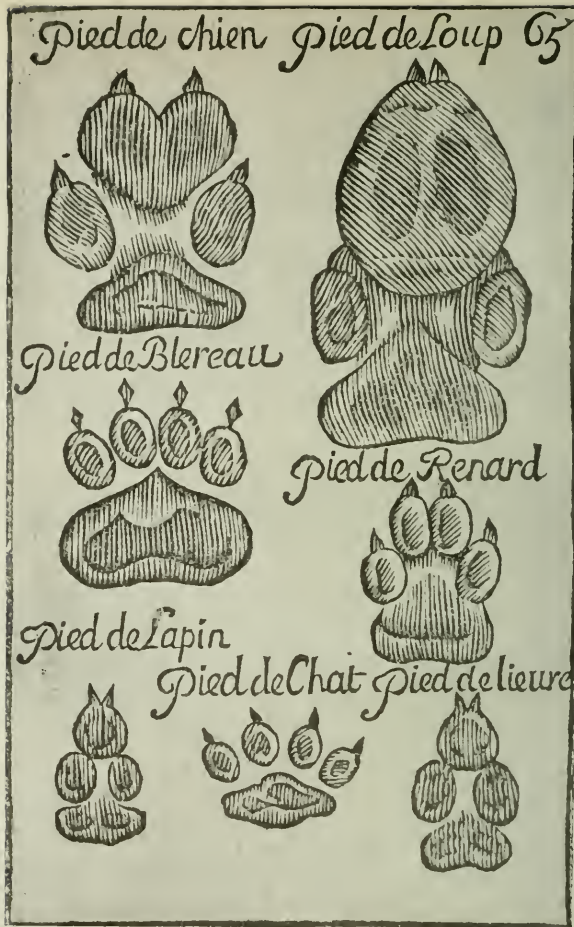 Pied de chien Pied de Loup 65
Pied de Blereau
Pied de Renard
Pied de Lapin
Pied de Chat Pied de lieure